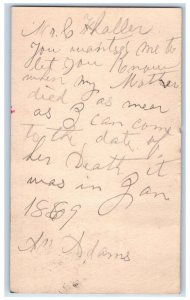 Mr. C Haller
You wanted me to
let you Know
when my Mother
died I as near
as I can come
to the date of
her Death it
was in Jan
1889
Adams